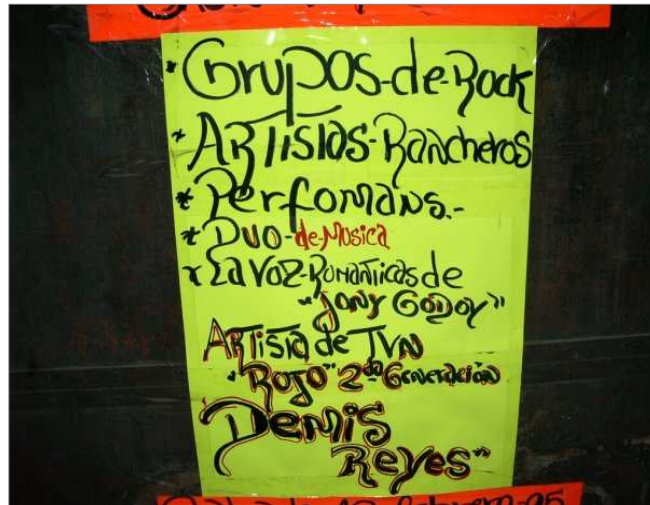 * Grupos-de-Rock
* ARTisTas-Rancheros
* Perfomans.-
* DUO-de-Musica
* La Voz-Romanticas de
"Jony Godoy"
ARTista de TVN
"Rojo" 2da Generacion
Demis
Reyes"